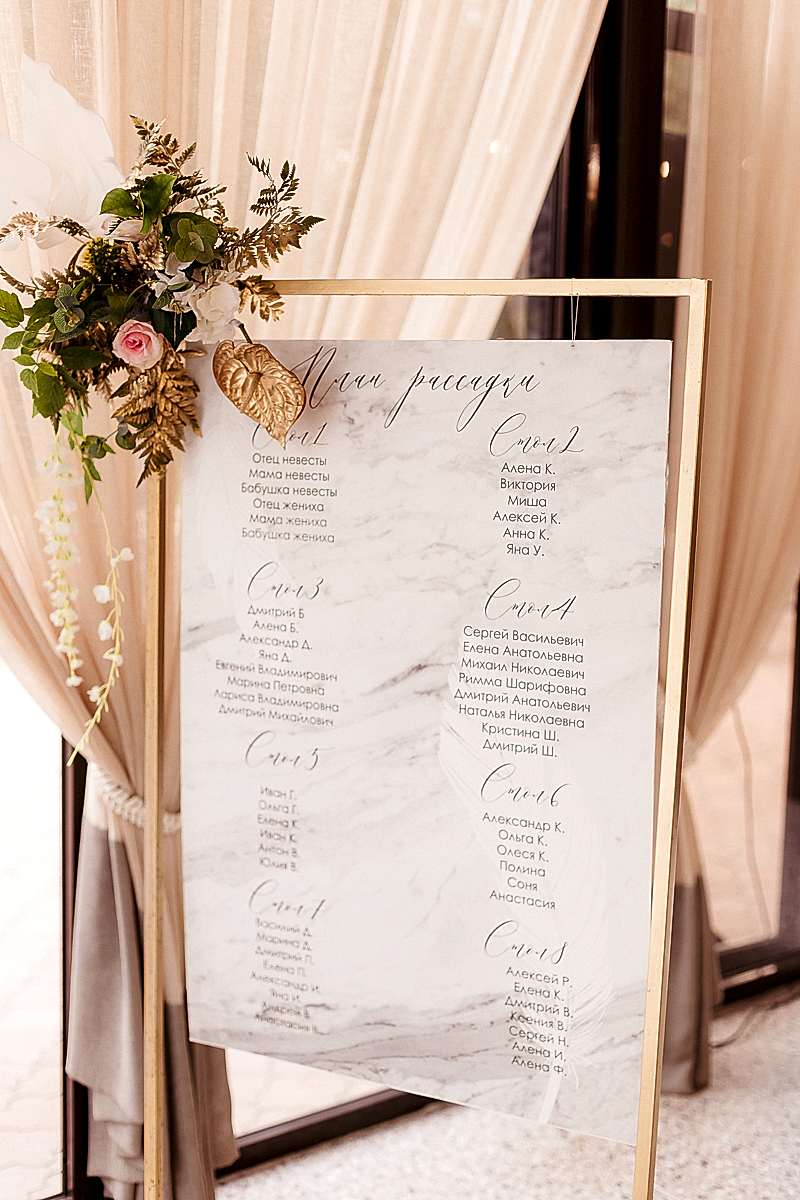 План рассадки
Стол 1
Отец невесты
Мама невесты
Бабушка невесты
Отец жениха
Мама жениха
Бабушка жениха
Стол 2
Алена К.
Виктория
Миша
Алексей К.
Анна К.
Яна У.
Стол 3
Дмитрий Б
Алена Б.
Александр Д.
Яна Д.
Евгений Владимирович
Марина Петровна
Лариса Владимировна
Дмитрий Михайлович
Стол 4
Сергей Васильевич
Елена Анатольевна
Михаил Николаевич
Римма Шарифовна
Дмитрий Анатольевич
Наталья Николаевна
Кристина Ш.
Дмитрий Ш.
Стол 5
Иван Г.
Ольга Г.
Елена К.
Иван К.
Антон В.
Юлия В.
Стол 6
Александр К.
Ольга К.
Олеся К.
Полина
Соня
Анастасия
Стол 7
Василий Д.
Марина Д.
Дмитрий П.
Елена П.
Александр И.
Яна И.
Андрей
Анастасия
Стол 8
Алексей Р.
Елена К.
Дмитрий В.
Ксения В.
Сергей Н.
Алена И.
Алена Ф.